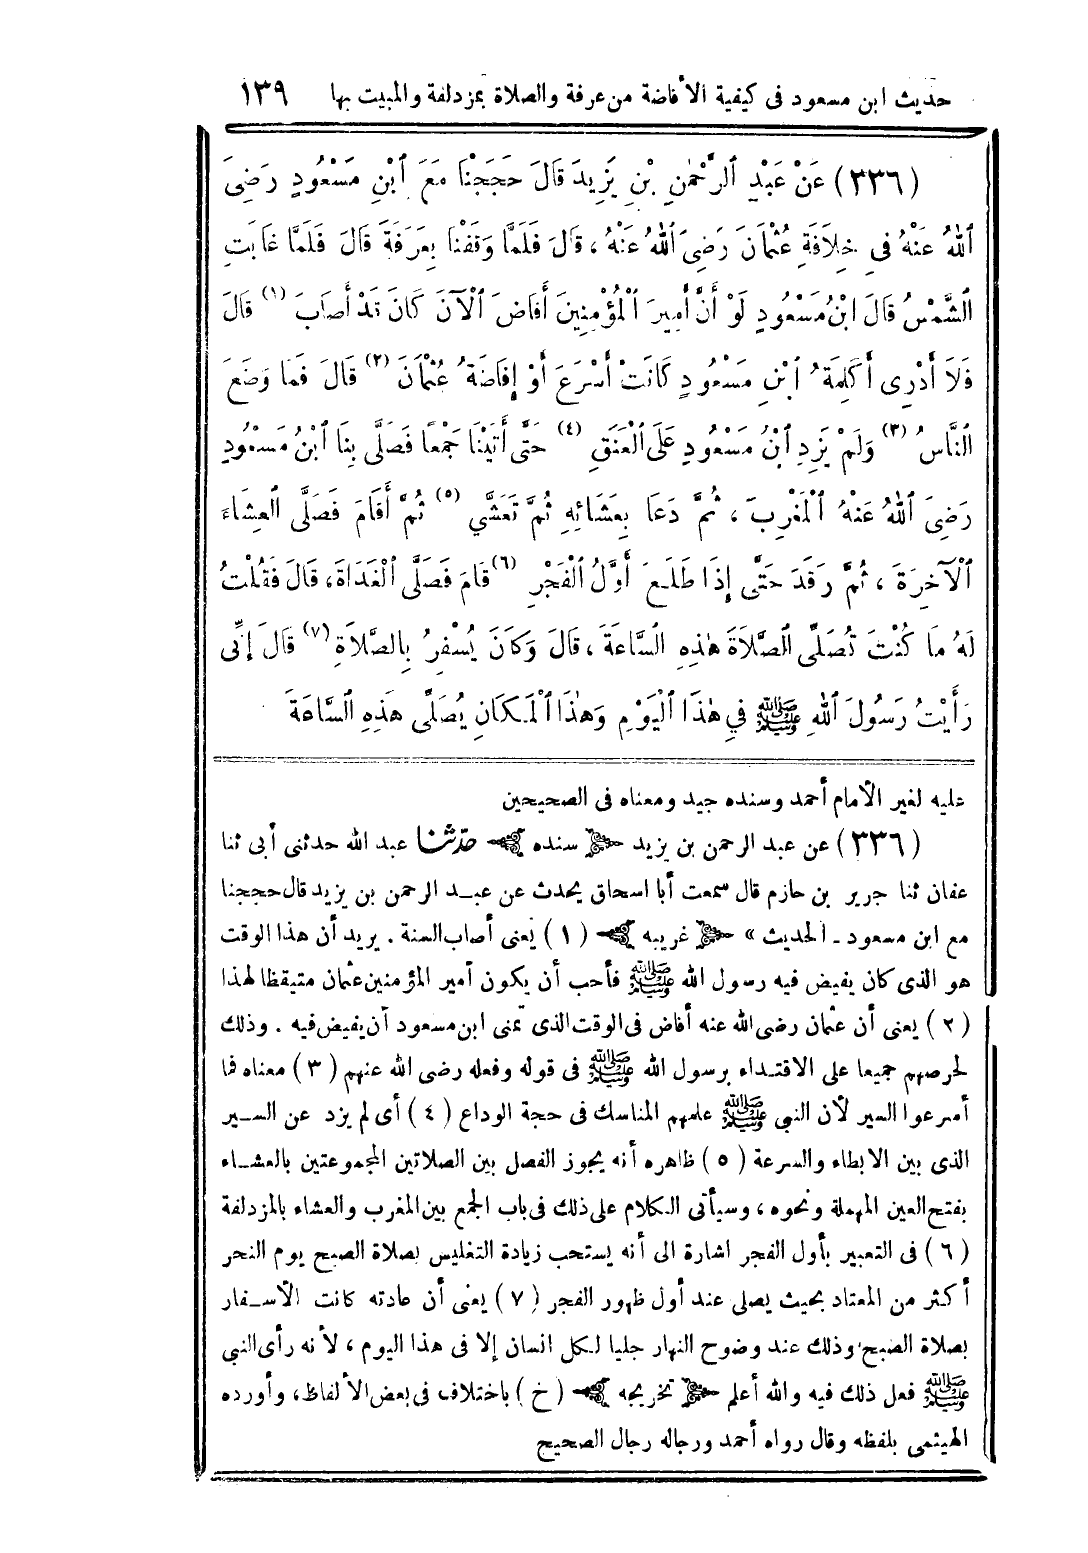 حديث ابن مسعود فى كيفية الأفاضة من عرفة والصلاة بمزدلفة والمبيت بها ١٣٩
(٣٣٦) عَنْ عَبْدِ ٱلرَّحْمٰنِ بْنِ يَزِيدَ قَالَ حَجَجْنَا مَعَ ٱبْنِ مَسْعُودٍ رَضِىَ
ٱللهُ عَنْهُ فِي خِلَافَةِ عُثْمَانَ رَضِىَ ٱللهُ عَنْهُ ، قَالَ فَلَمَّا وَقَفْنَا بِعَرَفَةَ قَالَ فَلَمَّا غَابَتِ
ٱلشَّمْسُ قَالَ ابْنُ مَسْعُودٍ لَوْ أَنَّ أَمِيرَ ٱلْمُؤْمِنِينَ أَفَاضَ ٱلْآنَ كَانَ قَدْ أَصَابَ (١) قَالَ
فَلَا أَدْرِى أَكَلِمَةُ ٱبْنِ مَسْعُودٍ كَانَتْ أَسْرَعَ أَوْ إِفَاضَةُ عُثْمَانَ (٢) قَالَ فَمَا وَضَعَ
ٱلنَّاسُ (٣) وَلَمْ يَزِدِ ٱبْنُ مَسْعُودٍ عَلَى ٱلْعَنَقِ (٤) حَتَّى أَتَيْنَا جَمْعًا فَصَلَّى بِنَا ٱبْنُ مَسْعُودٍ
رَضِىَ ٱللهُ عَنْهُ ٱلْمَغْرِبَ ، ثُمَّ دَعَا بِعَشَائِهِ ثُمَّ تَعَشَّى (٥) ثُمَّ أَقَامَ فَصَلَّى ٱلعِشَاءَ
ٱلْآخِرَةَ ، ثُمَّ رَقَدَ حَتَّى إِذَا طَلَعَ أَوَّلُ ٱلْفَجْرِ (٦) قَامَ فَصَلَّى ٱلْغَدَاةَ، قَالَ فَقُلْتُ
لَهُ مَا كُنْتَ تُصَلِّى ٱلصَّلَاةَ هٰذِهِ ٱلسَّاعَةَ ، قَالَ وَكَانَ يُسْفِرُ بِالصَّلَاةِ (٧) قَالَ إِنِّى
رَأَيْتُ رَسُولَ ٱللهِ ﷺ فِي هٰذَا ٱلْيَوْمِ وَهٰذَا ٱلْمَكَانِ يُصَلِّى هَذِهِ ٱلسَّاعَةَ
عليه لغير الأمام أحمد وسنده جيد ومعناه فى الصحيحين
(٣٣٦) عن عبد الرحمن بن يزيد ﴿ سنده ﴾ حدثنا عبد الله حدثنى أبى ثنا
عفان ثنا جرير بن حازم قال سمعت أبا اسحاق يحدث عن عبد الرحمن بن يزيد قال حججنا
مع ابن مسعود ـ الحديث » ﴿ غريبه ﴾ (١) يعنى أصاب السنة . يريد أن هذا الوقت
هو الذى كان يفيض فيه رسول الله ﷺ فأحب أن يكون أمير المؤمنين عثمان متيقظا لهذا
(٢) يعنى أن عثمان رضى الله عنه أفاض فى الوقت الذى تمنى ابن مسعود أن يفيض فيه . وذلك
لحرصهم جميعا على الاقتداء برسول الله ﷺ فى قوله وفعله رضى الله عنهم (٣) معناه فما
أسرعوا السير لأن النبي ﷺ علمهم المناسك فى حجة الوداع (٤) أى لم يزد عن السير
الذى بين الابطاء والسرعة (٥) ظاهره أنه يجوز الفصل بين الصلاتين المجموعتين بالعشاء
بفتح العين المهملة ونحوه ، وسيأتى الكلام على ذلك فى باب الجمع بين المغرب والعشاء بالمزدلفة
(٦) فى التعبير بأول الفجر اشارة الى أنه يستحب زيادة التغليس بصلاة الصبح يوم النحر
أكثر من المعتاد بحيث يصلى عند أول ظهور الفجر (٧) يعنى أن عادته كانت الأسفار
بصلاة الصبح وذلك عند وضوح النهار جليا لكل انسان إلا فى هذا اليوم ، لأنه رأى النبي
ﷺ فعل ذلك فيه والله أعلم ﴿ تخريجه ﴾ (خ) باختلاف فى بعض الألفاظ، وأورده
الهيثمى بلفظه وقال رواه أحمد ورجاله رجال الصحيح